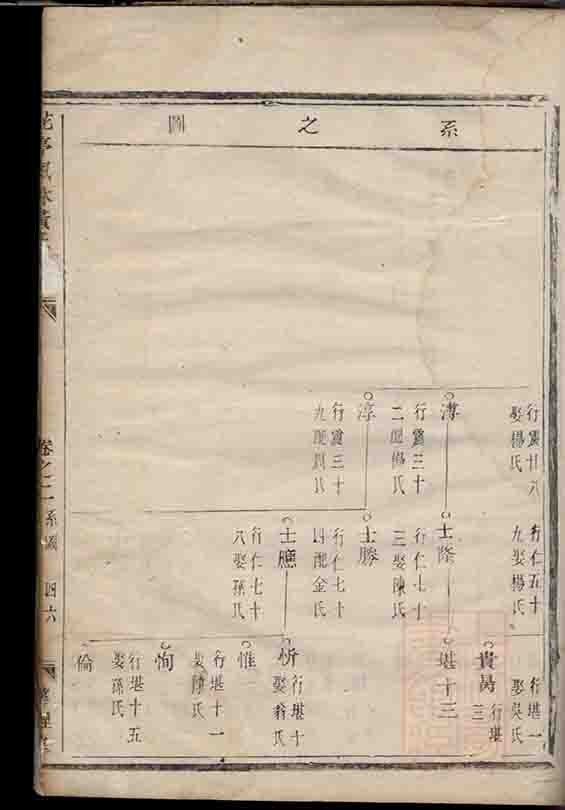 系之圖
行震廿八
娶楊氏
溥
行震三十
二配楊氏
淳
行震三十
九配劉氏
行仁五十
九娶楊氏
士隆
行仁七十
三娶陳氏
士勝
行仁七十
四配金氏
士應
行仁七十
八娶孫氏
行堪一
娶吳氏
貴昺
行堪
三
堪十三
忻
行堪十
娶翁氏
惟
行堪十一
娶陳氏
恂
行堪十五
娶孫氏
倫
卷之二
系圖
四六